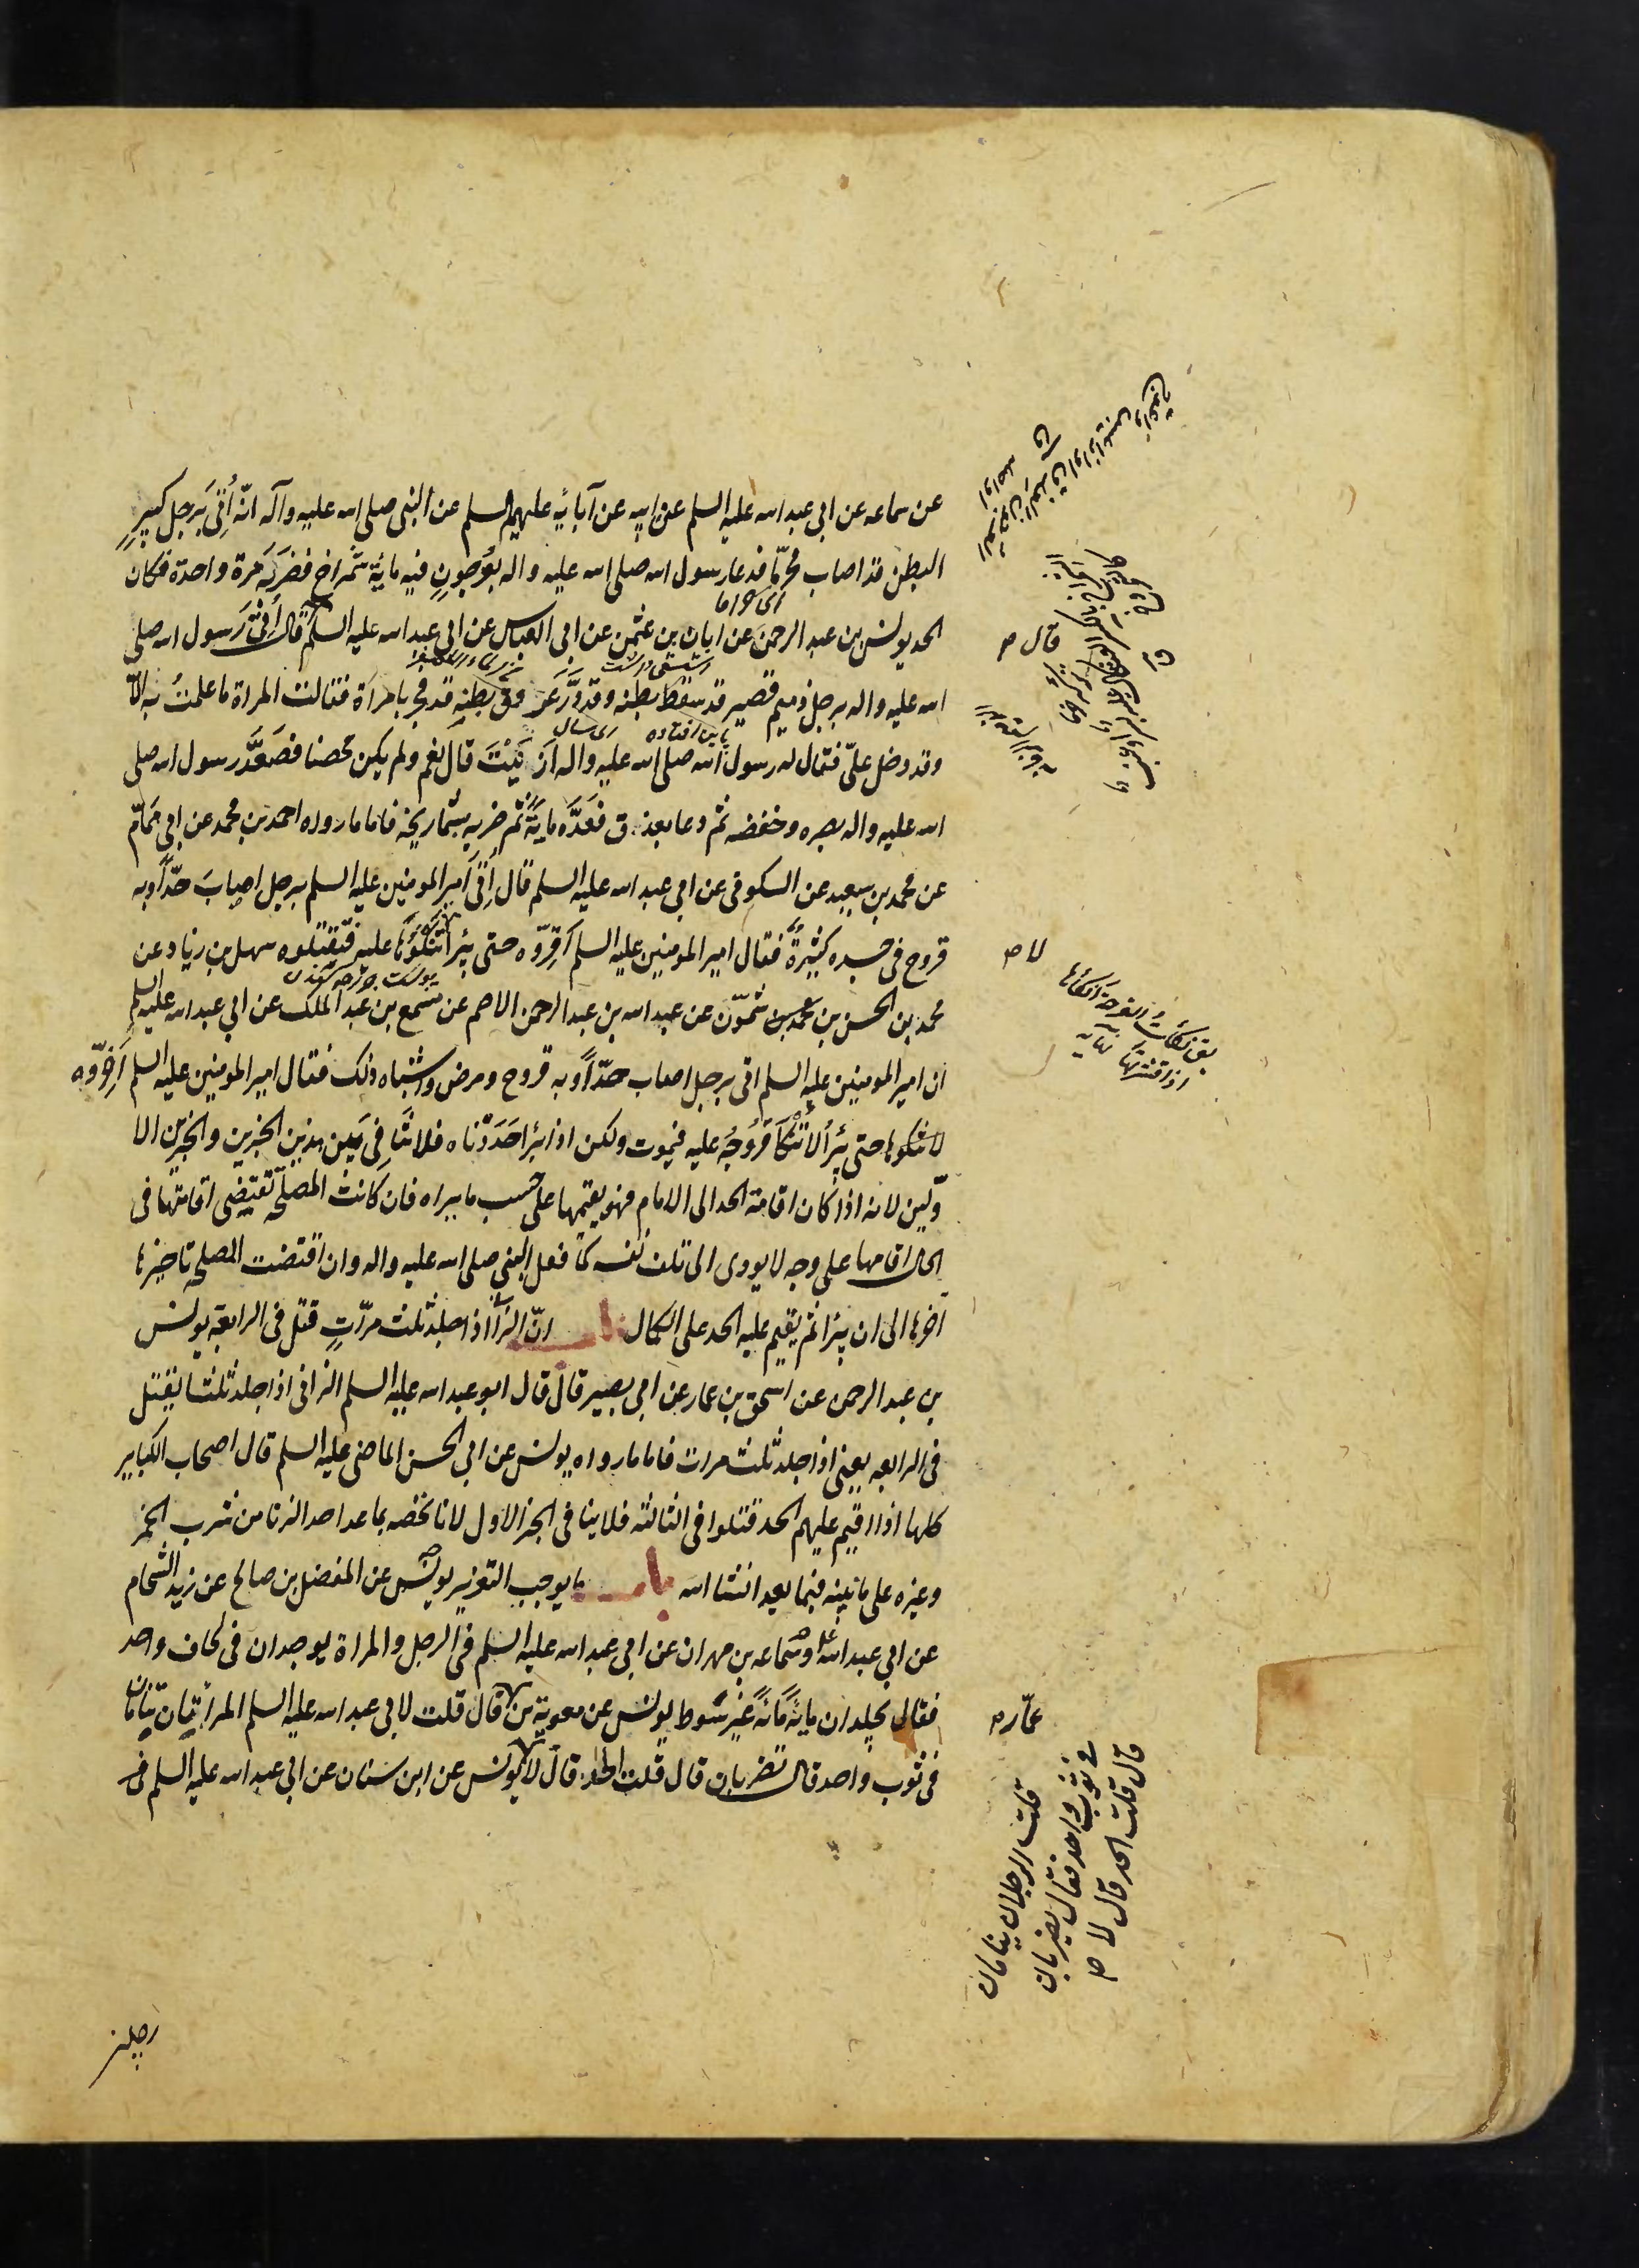 عن سماعه عن ابی عبد اسه علیه السلم عن ابیه عن آبائه علیهم السلم عن النبی صلی اسه علیه وآله انّه اُتِیَ برجل کبیرِ
البطن قد اصاب محرّما فدعا رسول اسه صلی اسه علیه واله بعُرجونٍ فیه مایة شمراخ فضربه مرة واحدة فکان
الحد یونس بن عبد الرحمن عن ابان بن عثمن عن ابی العباس عن ابی عبد اسه علیه السلم قال اُتِیَ رسول اسه صلی
اسه علیه واله برجل دمیم قصیر قد سقط بطنه وقد دَرَّ عروق بطنِه قد فجر بامراَة فقالت المراة ما علمتُ به الّا
وقد دخل علیّ فقال له رسول اسه صلی اسه علیه واله اَزَنَیْتَ قال نعم ولم یکن محصنا فصَعَّدَ رسول اسه صلی
اسه علیه واله بصره وخفضه ثم دعا بعذق فَعَدَّه مایةً ثم ضربه بشماریخه فاما ما رواه احمد بن محمد عن ابی همّام
عن محمد بن سعید عن السکونی عن ابی عبد اسه علیه السلم قال اُتِیَ امیر المومنین علیه السلم برجل اصابَ حدّاً وبه
قروح فی جسده کثیرةٌ فقال امیر المومنین علیه السلم اَقِرّوه حتی یبرأ تنکؤُها علیه فتقتلوه سهل بن زیاد عن
محمد بن الحسن بن شمّون عن عبد اسه بن عبد الرحمن الاصم عن مسمع بن عبد الملک عن ابی عبد اسه علیه السلم
ان امیر المومنین علیه السلم اتی برجل اصاب حدّاً وبه قروح ومرض واشباه ذلک فقال امیر المومنین علیه السلم اَخِّروه
حتی یبرأ لا تُنْکَأ قروحُه علیه فیموت ولکن اذا برأ حَدَدْناه فلا تنافی بین هذین الخبرین والخبرین الا
وّلین لانه اذا کان اقامة الحد الی الامام فهو یقیمها علی حسب ما یراه فان کانت المصلحة تقتضی اقامتها فی
الحال اقامها علی وجه لا یودی الی تلف نفسه کما فعل النبی صلی اسه علیه واله وان اقتضت المصلحة تاخیرها
اخرها الی ان یبرا ثم یقیم علیه الحد علی الکمال باب انّ الزانی اذا جلد ثلث مرّاتٍ قتل فی الرابعة یونس
بن عبد الرحمن عن اسحق بن عمار عن ابی بصیر قال قال ابو عبد اسه علیه السلم الزانی اذا جلد ثلثا یقتل
فی الرابعه یعنی اذا جلد ثلث مرات فاما ما رواه یونس عن ابی الحسن الماضی علیه السلم قال اصحاب الکبایر
کلها اذا اقیم علیهم الحد قتلوا فی الثالثة فلا ینافی الخبر الاول لانا نخصه بما عدا حد الزنا من شرب الخمر
وغیره علی ما نبینه فیما بعد انشا اسه باب ما یوجب التعزیر یونس عن المفضل بن صالح عن زید الشحام
عن ابی عبد اسه وسماعه بن مهران عن ابی عبد اسه علیه السلم فی الرجل والمراة یوجدان فی لحاف واحد
فقال یجلدان مایة مایة غیر سوط یونس عن معویة بن قال قلت لابی عبد اسه علیه السلم المراتان تنامان
فی ثوب واحد قال تضربان قال قلت الحد قال لا یونس عن ابن سنان عن ابی عبد اسه علیه السلم فی
رجلین
قال ص
لا ص
یق نکأت القرحة انکأها
اذا قشرتها نهایه
عمّار ص
قلت الرجلان ینامان
فی ثوب واحد فقال یضربان
قال قلت الحد قال لا ص